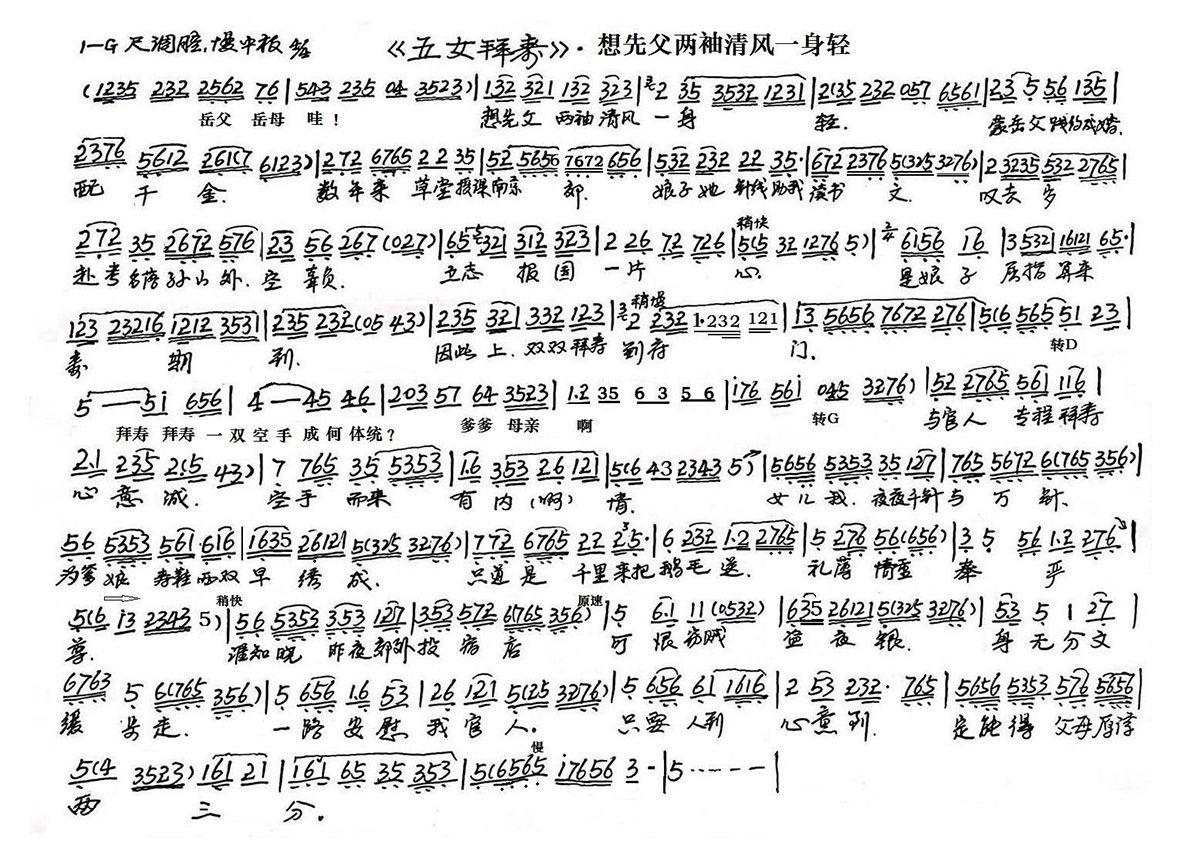 1=G 尺调腔.慢中板 《五女拜寿》·想先父两袖清风一身轻
(1235 232 2562 76 | 543 235 04 3523) | 132 321 132 323 | 2 35 3532 1231 | 2(35 232 057 6561 | 23 5 56 135 |
岳父 岳母 哇! 想先父 两袖清风 一身 轻. 蒙岳父践约成婚.
2376 5612 2617 6123) | 272 6765 22 35 | 52 5656 7672 656 | 532 232 22 35· | 672 2376 5(325 3276) | 2 3235 532 2765 |
配 千 金. 数年来 草堂攻课南京 郎. 娘子她 针线助我读书 文. 叹去岁
272 35 2672 576 | 23 56 267 (027) | 65 321 312 323 | 2 26 72 726 | 稍快 5(5 32 1276 5) | 6156 16 | 3 532 16121 65· |
赴考名落孙山外. 空 辜负. 立志 报国 一片 心. 是娘子 屈指算来
123 23216 1212 3531 | 235 232 (05 43) | 235 321 332 123 | 稍慢 2 232 1·232 121 | 13 5656 7672 276 | 5(6 565 51 23 |
寿 期 到. 因此上. 双双拜寿 到府 门. 转D
5— 5i 656 | 4— 45 46 | 203 57 64 3523 | 1.2 35 6 3 5 6 | i76 56i 045 3276) | 52 2765 561 116 |
拜寿 拜寿 一双空手成何体统? 爹爹 母亲 啊 转G 与官人 专程拜寿
2.1 235 2(5 43) | 7 765 35 5353 | 16 353 26 121 | 5(6 43 2343 5) | 5656 5353 35 127 | 765 5672 6(765 356) |
心意诚. 空手 而来 有内(啊)情. 女儿我. 夜夜千针与 万 针.
56 5353 561 616 | 1635 26121 5(325 3276) | 772 6765 22 25· | 6 232 1·2 2765 | 5 276 56(656) | 3 5 56 1.2 276 |
为爹娘 寿鞋两双早 绣 成. 只道是 千里来把鹅毛送. 礼薄情重 奉 严
5(6 i3 2343 5) 稍快 | 56 5353 3·53 127 | 353 572 6(765 356) 原速 | 5 6·1 11(0532) | 635 26121 5(325 3276) | 53 5 1 27 |
尊. 谁知晓 昨夜郊外投 宿 店 可 恨窃贼 盗 夜 银. 身无分文
6763 5 6(765 356) | 5 656 1·6 53 | 26 121 5(325 3276) | 5 656 61 1616 | 2 53 232· 765 | 5656 5353 576 5656 |
缓 步走. 一路安慰我官人. 只要人到 心意到. 定能得 父母厚谆
5(4 3523) 161 21 | 161 65 35 353 | 慢 5(6565 i7656 3- | 5 ······ - |
两 三 分.